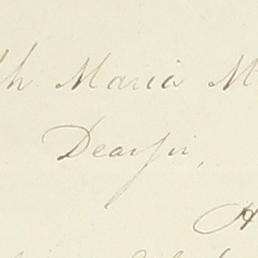 th Maria M
Dear Sir,
H